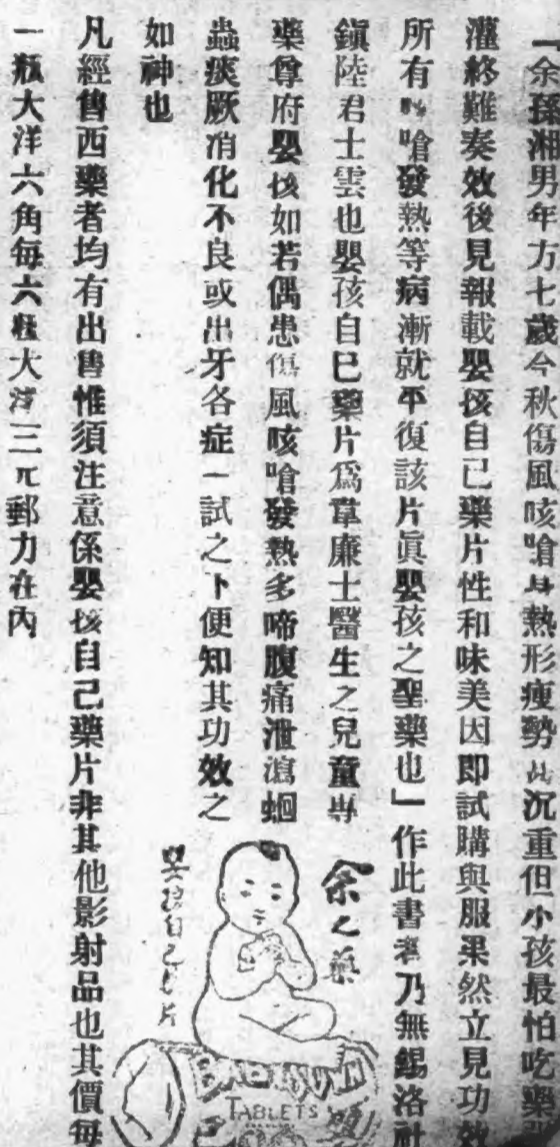 「余孫湘男年方七歲今秋傷風咳嗆身熱形瘦勢甚沉重但小孩最怕吃藥
灌終難奏效後見報載嬰孩自己藥片性和味美因即試購與服果然立見功效
所有咳嗆發熱等病漸就平復該片眞嬰孩之聖藥也」作此書者乃無錫洛社
鎭陸君士雲也嬰孩自已藥片爲韋廉士醫生之兒童專
藥尊府嬰孩如若偶患傷風咳嗆發熱多啼腹痛泄瀉蛔
蟲痰厥消化不良或出牙各症一試之下便知其功效之
如神也
凡經售西藥者均有出售惟須注意係嬰孩自己藥片非其他影射品也其價每
一瓶大洋六角每六瓶大洋三元郵力在內
余之藥
嬰孩自己藥片
BABY'S OWN
TABLETS